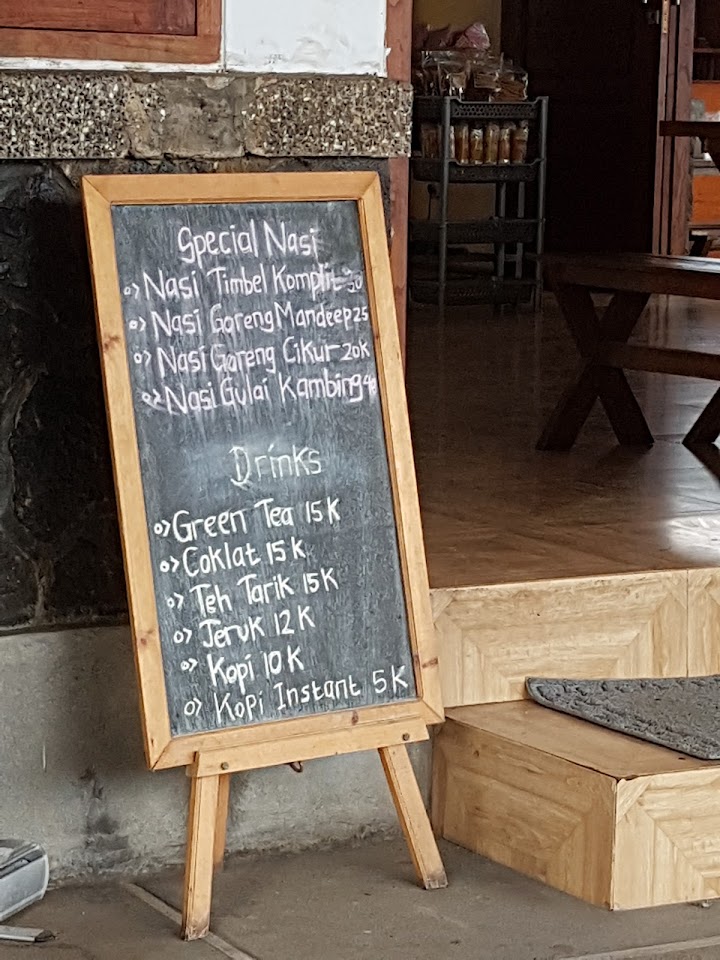 Special Nasi
Nasi Timbel Komplit 30
Nasi Goreng Mandeep 25
Nasi Goreng Cikur 20K
Nasi Gulai Kambing
Drinks
Green Tea 15K
Coklat 15K
Teh Tarik 15K
Jeruk 12K
Kopi 10K
Kopi Instant 5K